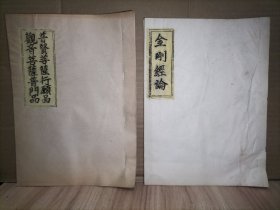 普賢菩薩行願品
觀音菩薩普門品
金剛經論